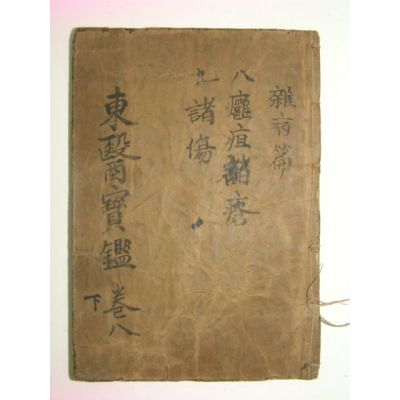 雜病篇
八 癰疽 諸瘡
九 諸傷
東醫寶鑑 卷八
下